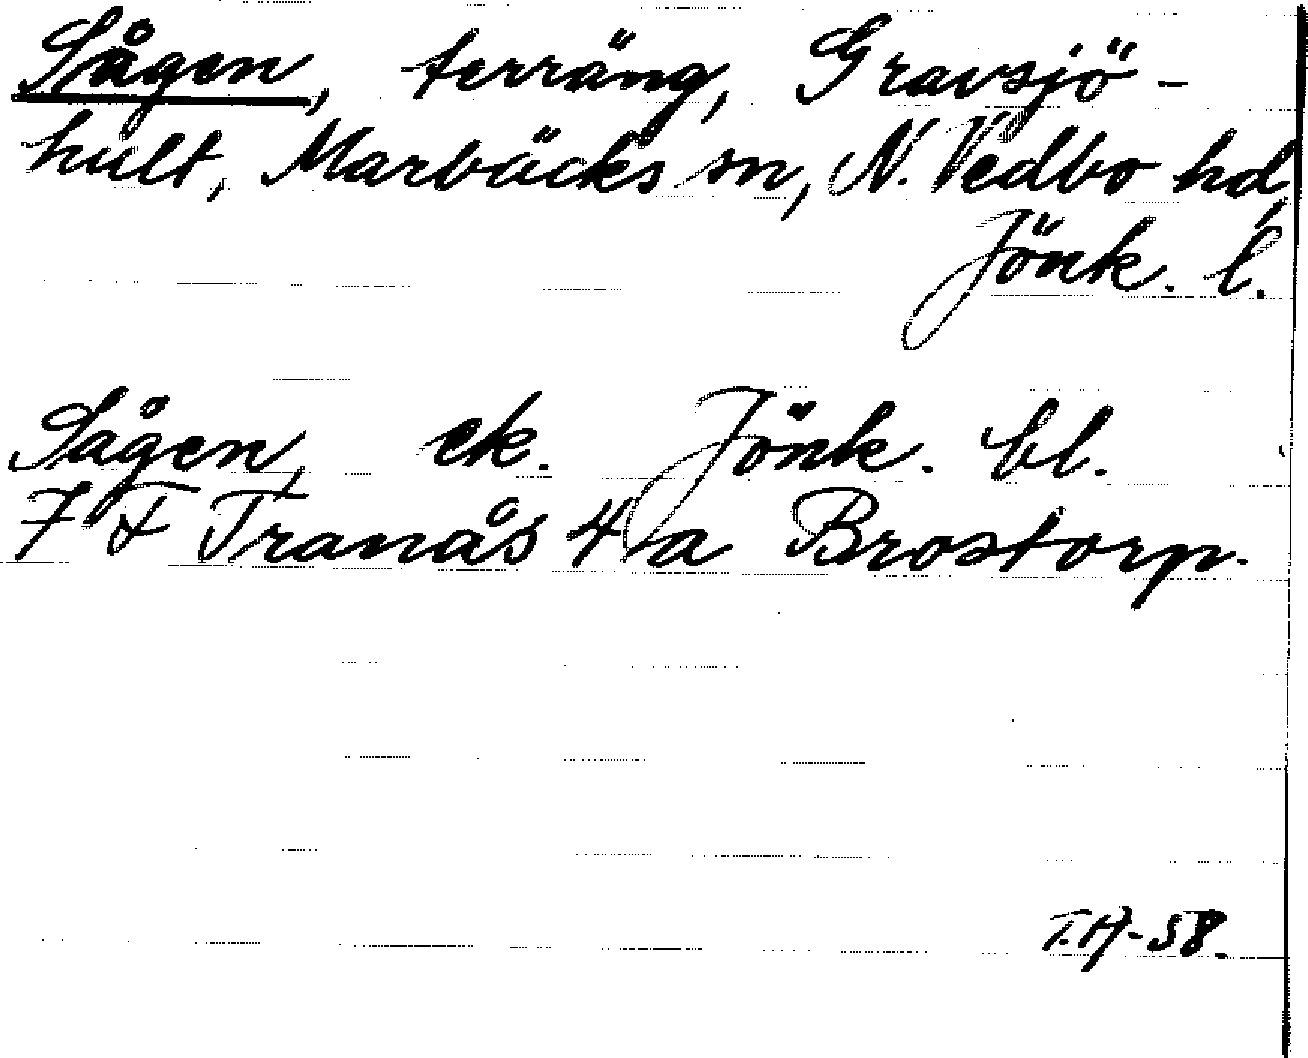 Sågen, terräng, Gravsjö-
hult, Marbäcks sn, N. Vedbo hd,
Jönk. l.
Sågen, ek. Jönk. bl.
7 F Tranås 4 a Brostorp.
T.H-58.